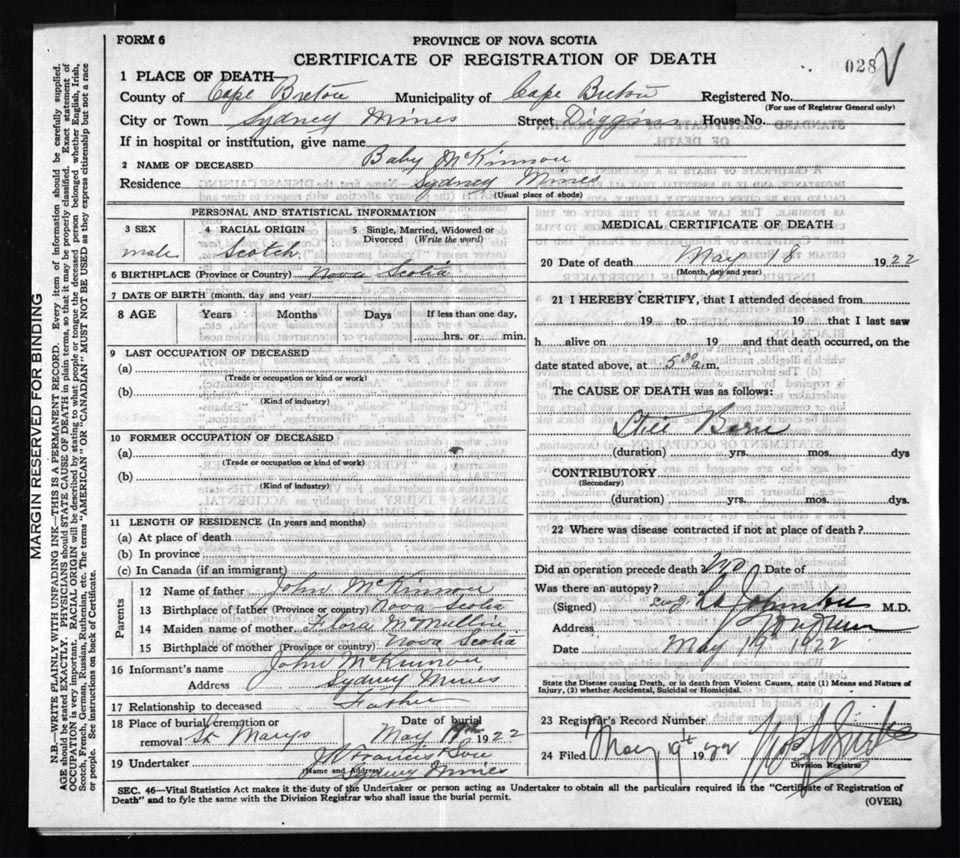 FORM 6
PROVINCE OF NOVA SCOTIA
CERTIFICATE OF REGISTRATION OF DEATH
028
1 PLACE OF DEATH
County of Cape Breton Municipality of Cape Breton Registered No.
(For use of Registrar General only)
City or Town Sydney Mines Street Diggins House No.
If in hospital or institution, give name
2 NAME OF DECEASED Baby McKinnon
Residence Sydney Mines
(Usual place of abode)
PERSONAL AND STATISTICAL INFORMATION
3 SEX 4 RACIAL ORIGIN 5 Single, Married, Widowed or Divorced (Write the word)
male Scotch
6 BIRTHPLACE (Province or Country) Nova Scotia
7 DATE OF BIRTH (month, day and year)
8 AGE Years Months Days If less than one day,
hrs. or min.
9 LAST OCCUPATION OF DECEASED
(a)
(Trade or occupation or kind of work)
(b)
(Kind of industry)
10 FORMER OCCUPATION OF DECEASED
(a)
(Trade or occupation or kind of work)
(b)
(Kind of industry)
11 LENGTH OF RESIDENCE (In years and months)
(a) At place of death
(b) In province
(c) In Canada (if an immigrant)
Parents
12 Name of father John McKinnon
13 Birthplace of father (Province or country) Nova Scotia
14 Maiden name of mother Flora McMullin
15 Birthplace of mother (Province or country) Nova Scotia
16 Informant's name John McKinnon
Address Sydney Mines
17 Relationship to deceased Father
18 Place of burial, cremation or removal St Marys Date of burial May 19th 1922
19 Undertaker J A Francis & Son
(Name and Address) Sydney Mines
MEDICAL CERTIFICATE OF DEATH
20 Date of death May 18 1922
(Month, day and year)
21 I HEREBY CERTIFY, that I attended deceased from
19 to 19 that I last saw
h alive on 19 and that death occurred, on the
date stated above, at 5:30 a.m.
The CAUSE OF DEATH was as follows:
Still Born
(duration) yrs. mos. dys
CONTRIBUTORY
(Secondary)
(duration) yrs. mos. dys.
22 Where was disease contracted if not at place of death?
Did an operation precede death no Date of
Was there an autopsy?
(Signed) M.D.
Address
Date May 19th 1922
State the Disease causing Death, or in death from Violent Causes, state (1) Means and Nature of
Injury, (2) whether Accidental, Suicidal or Homicidal.
23 Registrar's Record Number
24 Filed May 19th 1922
Division Registrar
SEC. 46—Vital Statistics Act makes it the duty of the Undertaker or person acting as Undertaker to obtain all the particulars required in the "Certificate of Registration of
Death" and to fyle the same with the Division Registrar who shall issue the burial permit.
(OVER)
MARGIN RESERVED FOR BINDING
N.B.—WRITE PLAINLY WITH UNFADING INK—THIS IS A PERMANENT RECORD. Every item of information should be carefully supplied.
AGE should be stated EXACTLY. PHYSICIANS should STATE CAUSE OF DEATH in plain terms, so that it may be properly classified. Exact statement of
OCCUPATION is very important. RACIAL ORIGIN will be described by stating to what people or tongue the deceased person belonged whether English, Irish,
Scotch, French, German, Russian, Ruthenian, etc. The terms "AMERICAN" OR "CANADIAN" MUST NOT BE USED as they express citizenship but not a race
or people. See instructions on back of Certificate.